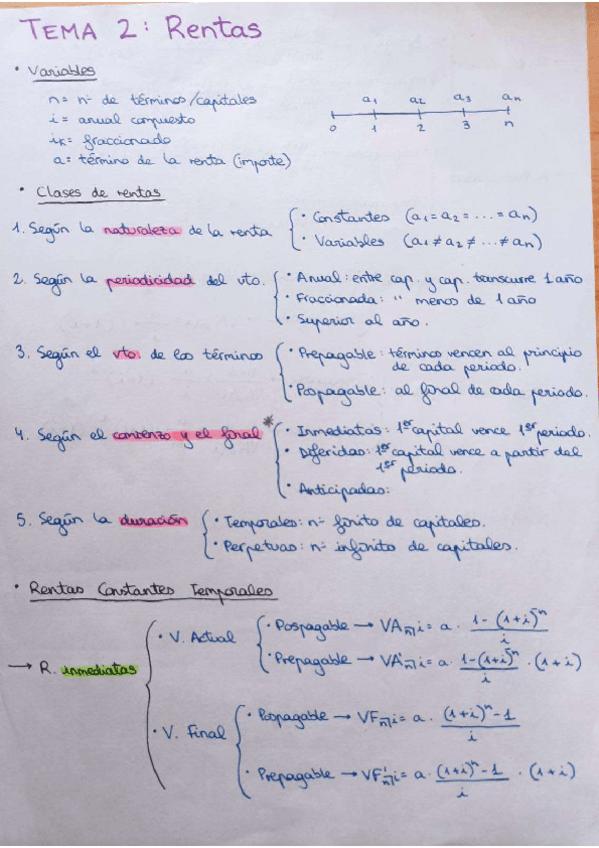 TEMA 2: Rentas
· Variables
n = nº de términos/capitales
i = anual compuesto
iK = fraccionado
a = término de la renta (importe)
a1 a2 a3 an
0 1 2 3 n
· Clases de rentas
1. Según la naturaleza de la renta
· Constantes (a1 = a2 = ... = an)
· Variables (a1 ≠ a2 ≠ ... ≠ an)
2. Según la periodicidad del vto.
· Anual: entre cap. y cap. transcurre 1 año
· Fraccionada: " menos de 1 año
· Superior al año.
3. Según el vto. de los términos
· Prepagable: términos vencen al principio
de cada periodo.
· Pospagable: al final de cada periodo.
4. Según el comienzo y el final *
· Inmediatas: 1er capital vence 1er periodo.
· Diferidas: 1er capital vence a partir del
1er periodo.
· Anticipadas:
5. Según la duración
· Temporales: nº finito de capitales.
· Perpetuas: nº infinito de capitales.
· Rentas Constantes Temporales
→ R. inmediatas
· V. Actual
· Pospagable → VAn¬i = a · 1-(1+i)^-n / i
· Prepagable → VA'n¬i = a · 1-(1+i)^-n / i · (1+i)
· V. Final
· Pospagable → VFn¬i = a · (1+i)^n - 1 / i
· Prepagable → VF'n¬i = a · (1+i)^n - 1 / i · (1+i)